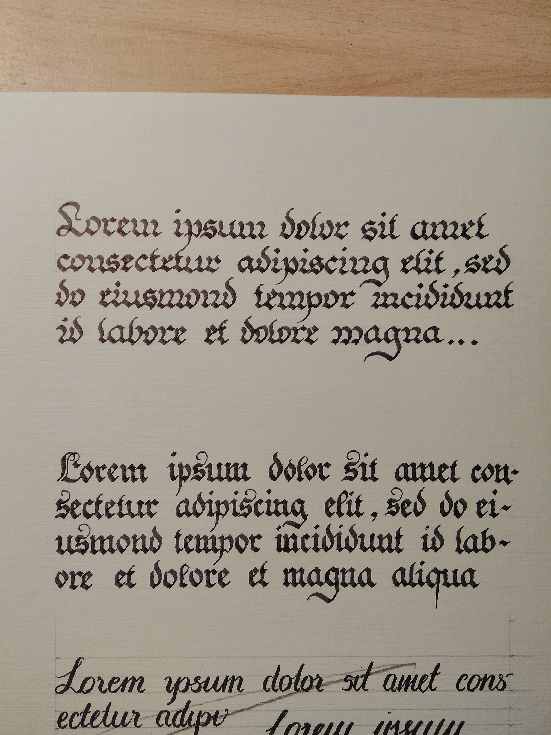 Lorem ipsum dolor sit amet
consectetur adipiscing elit, sed
do eiusmond tempor incididunt
id labore et dolore magna...
Lorem ipsum dolor sit amet con-
sectetur adipiscing elit, sed do ei-
usmond tempor incididunt id lab-
ore et dolore et magna aliqua
Lorem ipsum dolor sit amet cons
ectetur adipi
Lorem ipsum